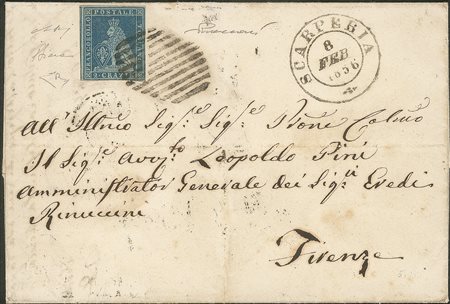 FRANCOBOLLO POSTALE TOSCANO
2 CRAZIE
SCARPERIA
8
FEB
1856
All' Illmo Sigre Sigre Prone Colmo
Il Sigre Avvto Leopoldo Pini
Amministrator Generale dei Sigri Eredi
Rinuccini
Firenze